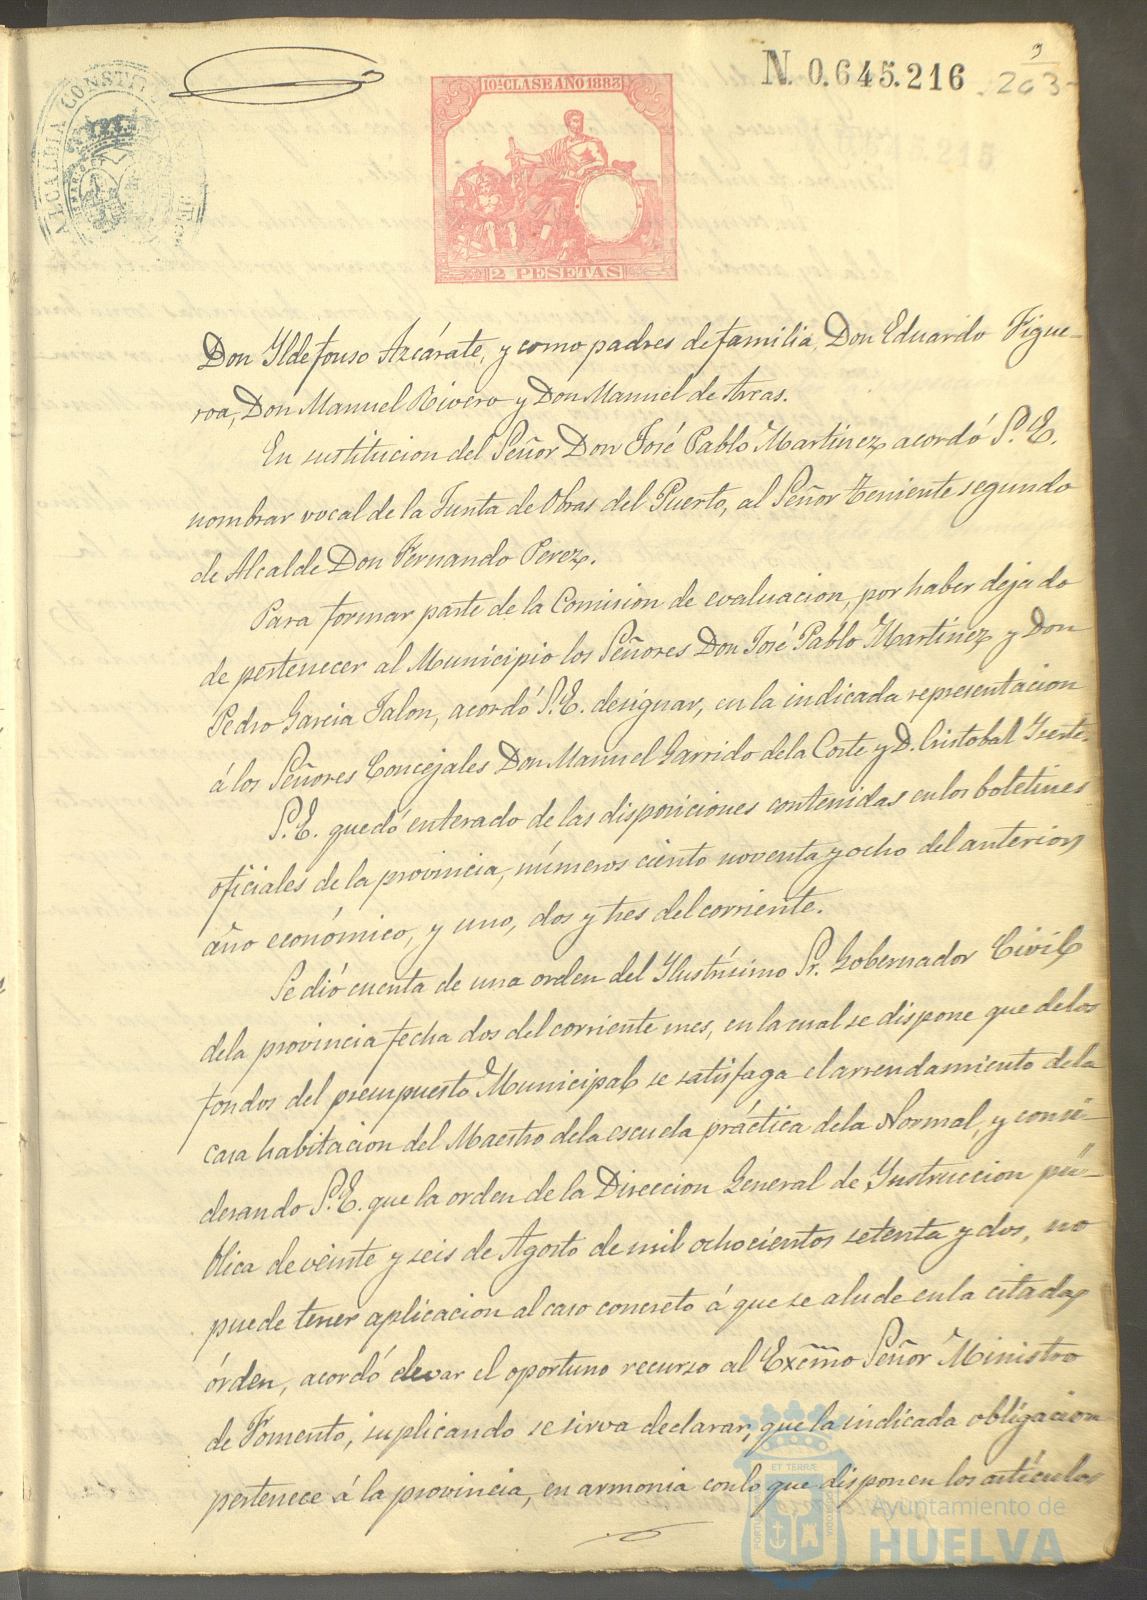 ALCALDIA CONSTITU
10ª CLASE AÑO 1883
2 PESETAS
N. 0.645.216
203
Don Yldefonso Azcárate, y como padres de familia, Don Eduardo Figue-
roa, Don Manuel Rivero y Don Manuel de Arcas.
En sustitucion del Señor Don José Pablo Martinez acordó S.E.
nombrar vocal de la Junta de Obras del Puerto, al Señor teniente segundo
de Alcalde Don Fernando Perez.
Para formar parte de la Comision de evaluacion, por haber dejado
de pertenecer al Municipio los Señores Don José Pablo Martinez y Don
Pedro Garcia Jalon, acordó S.E. designar, en la indicada representacion
á los Señores Concejales Don Manuel Garrido de la Corte y D. Cristobal
S.E. quedó enterado de las disposiciones contenidas en los boletines
oficiales de la provincia, números ciento noventa y ocho del anterior
año económico, y uno, dos y tres del corriente.
Se dió cuenta de una orden del Ylustrísimo Sr. Gobernador Civil
de la provincia fecha dos del corriente mes, en la cual se dispone que de los
fondos del presupuesto Municipal se satisfaga el arrendamiento de la
casa habitacion del Maestro de la escuela práctica de la Normal, y consi-
derando S.E. que la orden de la Direccion General de Ynstruccion pú-
blica de veinte y seis de Agosto de mil ochocientos setenta y dos, no
puede tener aplicacion al caso concreto á que se alude en la citada
órden, acordó elevar el oportuno recurso al Excmo Señor Ministro
de Fomento, suplicando se sirva declarar, que la indicada obligacion
pertenece á la provincia, en armonia con lo que disponen los artículos
Ayuntamiento de
HUELVA